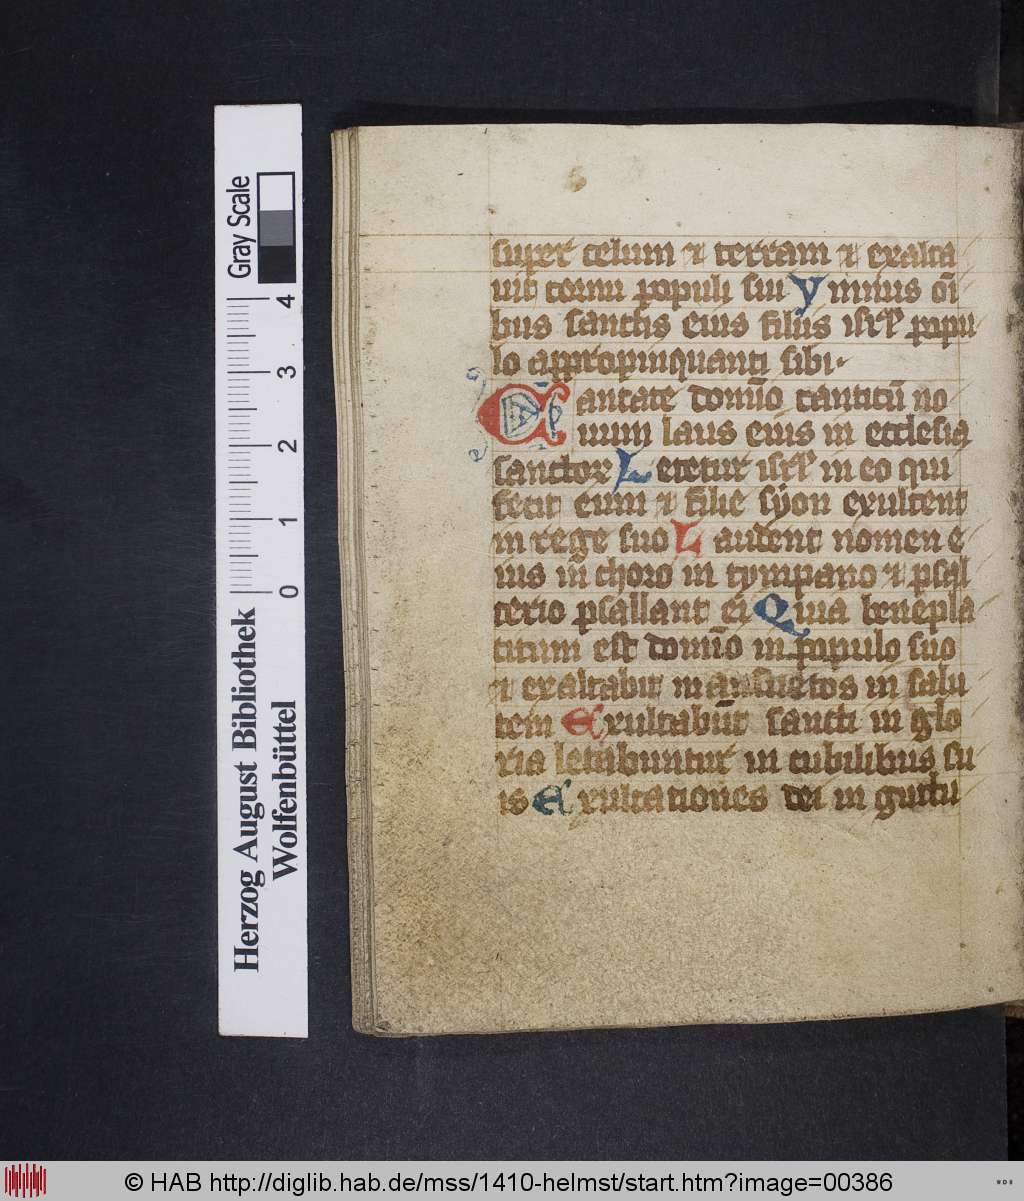 super celum ⁊ terram ⁊ exalta
uit cornu populi sui Ymnus om̄i
bus sanctis eius filiis isrl̄ popu
lo appropinquanti sibi·
Cantate domīo canticū no
uum laus eius in ecclesia
sanctoꝝ Letetur isrl̄ in eo qui
fecit eum ⁊ filie syon exultent
in rege suo Laudent nomen e
ius in choro in tympano ⁊ psal
terio psallant ei Quia benepla
citum est domīo in populo suo
⁊ exaltabit mansuetos in salu
tem Exultabūt sancti in glo
ria letabuntur in cubilibus su
is Exultationes dei in guttu
Herzog August Bibliothek
Wolfenbüttel
Gray Scale
0 1 2 3 4
© HAB http://diglib.hab.de/mss/1410-helmst/start.htm?image=00386